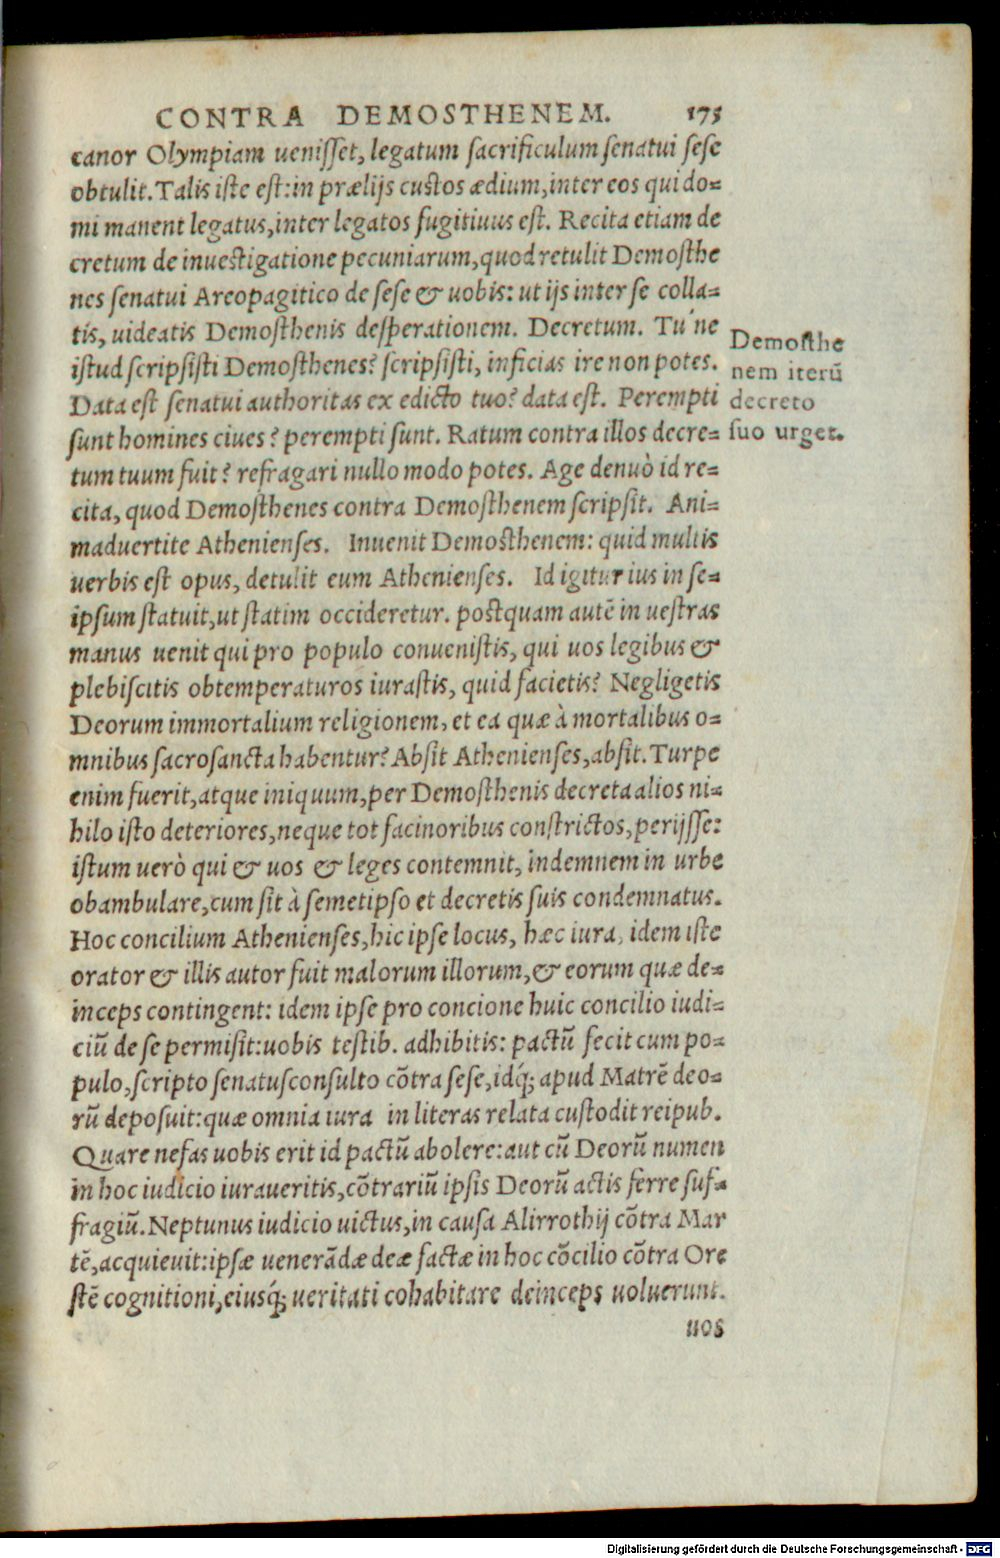 CONTRA DEMOSTHENEM. 175
canor Olympiam uenisset, legatum sacrificulum senatui sese
obtulit. Talis iste est: in prælijs custos ædium, inter eos qui do=
mi manent legatus, inter legatos fugitiuus est. Recita etiam de
cretum de inuestigatione pecuniarum, quod retulit Demosthe
nes senatui Areopagitico de sese & uobis: ut ijs inter se colla=
tis, uideatis Demosthenis desperationem. Decretum. Tu´ne
istud scripsisti Demosthenes? scripsisti, inficias ire non potes.
Data est senatui authoritas ex edicto tuo? data est. Perempti
sunt homines ciues? perempti sunt. Ratum contra illos decre=
tum tuum fuit? refragari nullo modo potes. Age denuò id re=
cita, quod Demosthenes contra Demosthenem scripsit. Ani=
maduertite Athenienses. Inuenit Demosthenem: quid multis
uerbis est opus, detulit eum Athenienses. Id igitur ius in se=
ipsum statuit, ut statim occideretur. postquam autē in uestras
manus uenit qui pro populo conuenistis, qui uos legibus &
plebiscitis obtemperaturos iurastis, quid facietis? Negligetis
Deorum immortalium religionem, et ea quæ à mortalibus o=
mnibus sacrosancta habentur? Absit Athenienses, absit. Turpe
enim fuerit, atque iniquum, per Demosthenis decreta alios ni=
hilo isto deteriores, neque tot facinoribus constrictos, perijsse:
istum uerò qui & uos & leges contemnit, indemnem in urbe
obambulare, cum sit à semetipso et decretis suis condemnatus.
Hoc concilium Athenienses, hic ipse locus, hæc iura, idem iste
orator & illis autor fuit malorum illorum, & eorum quæ de=
inceps contingent: idem ipse pro concione huic concilio iudi=
ciū de se permisit: uobis testib. adhibitis: pactū fecit cum po=
pulo, scripto senatusconsulto cōtra sese, idq́; apud Matrē deo=
rū deposuit: quæ omnia iura in literas relata custodit reipub.
Quare nefas uobis erit id pactū abolere: aut cū Deorū numen
in hoc iudicio iuraueritis, cōtrariū ipsis Deorū actis ferre suf=
fragiū. Neptunus iudicio uictus, in causa Alirrothij cōtra Mar
tē, acquieuit: ipsæ uenerādæ deæ factæ in hoc cōcilio cōtra Ore
stē cognitioni, eiusq́; ueritati cohabitare deinceps uoluerunt.
uos
Demosthe
nem iterū
decreto
suo urget.
Digitalisierung gefördert durch die Deutsche Forschungsgemeinschaft - DFG